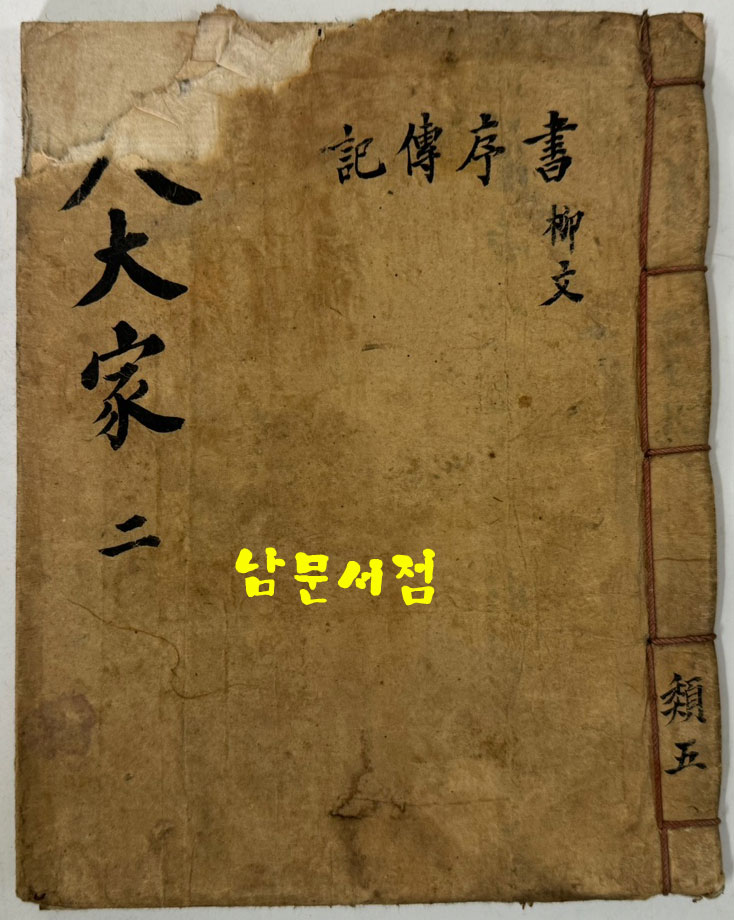 書序傳記
柳文
八大家 二
남문서점
類五